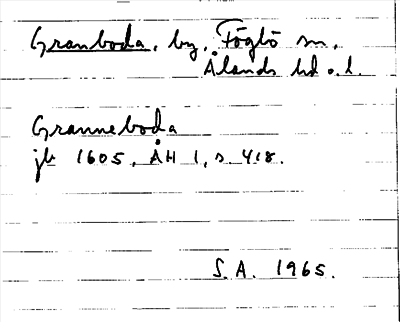 Granboda, by, Föglö sn,
Ålands hd o. l.
Granneboda
jb 1605, ÅH 1, s 418.
S.A. 1965.